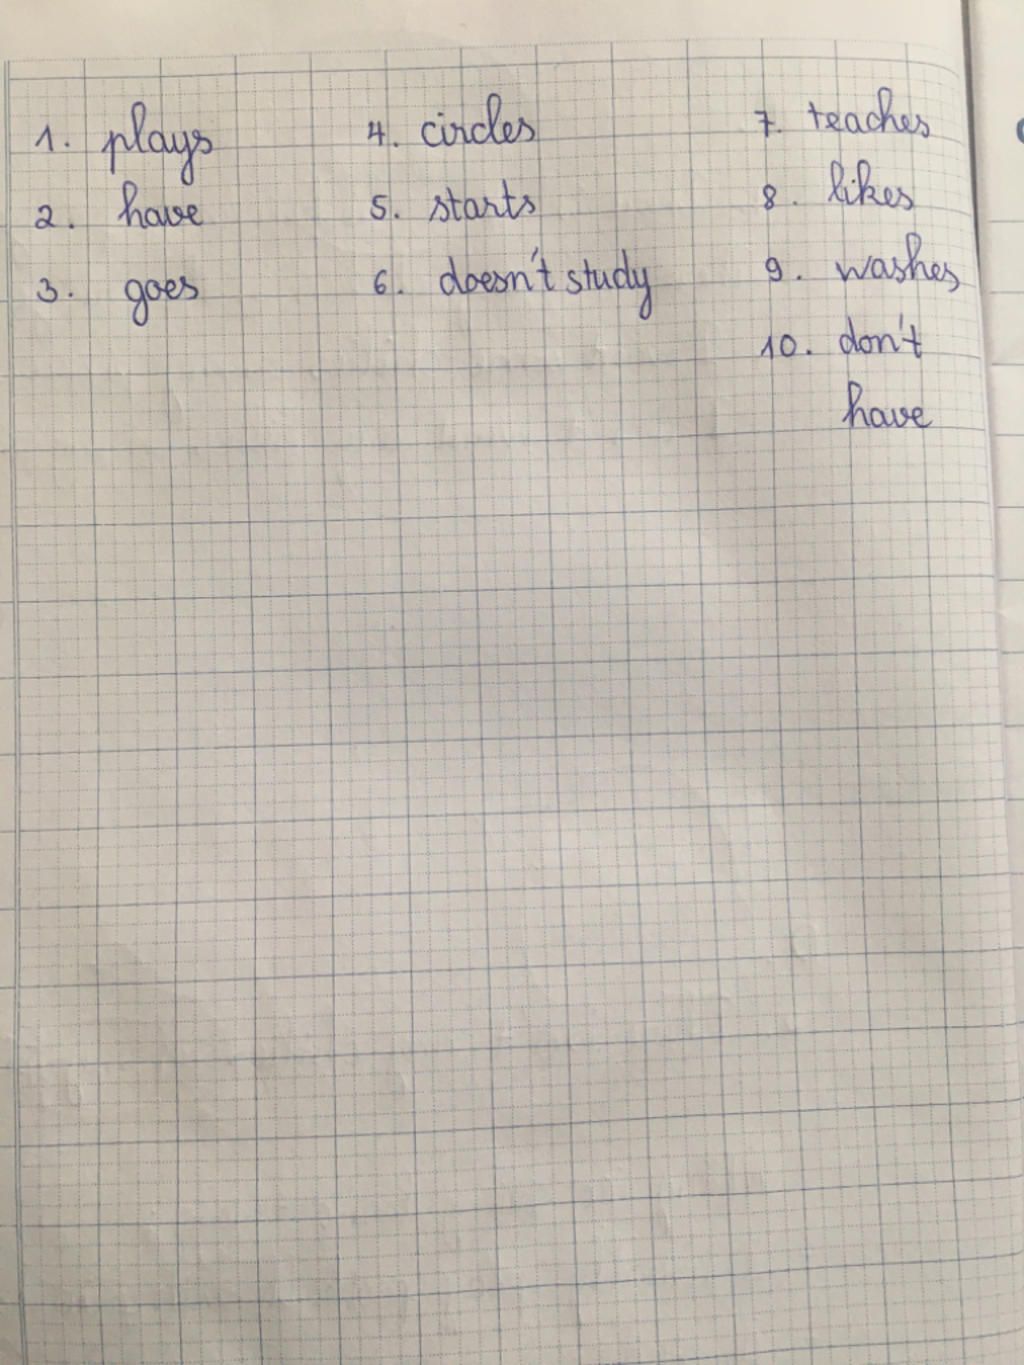 1. plays
2. have
3. goes
4. circles
5. starts
6. doesn't study
7. teaches
8. likes
9. washes
10. don't
have